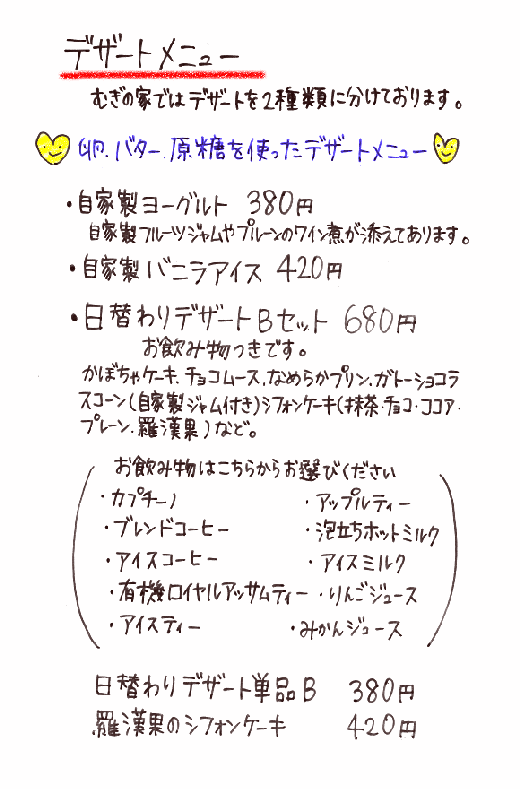 デザートメニュー
むぎの家ではデザートを2種類に分けております。
卵.バター.原糖を使ったデザートメニュー
・自家製ヨーグルト 380円
自家製フルーツジャムやプルーンのワイン煮が添えてあります。
・自家製バニラアイス 420円
・日替わりデザートBセット 680円
お飲み物つきです。
かぼちゃケーキ.チョコムース.なめらかプリン.ガトーショコラ
スコーン(自家製ジャム付き)シフォンケーキ(抹茶・チョコ・ココア・
プレーン.羅漢果)など。
お飲み物はこちらからお選びください
・カプチーノ ・アップルティー
・ブレンドコーヒー ・泡立ちホットミルク
・アイスコーヒー ・アイスミルク
・有機ロイヤルアッサムティー ・りんごジュース
・アイスティー ・みかんジュース
日替わりデザート単品B 380円
羅漢果のシフォンケーキ 420円